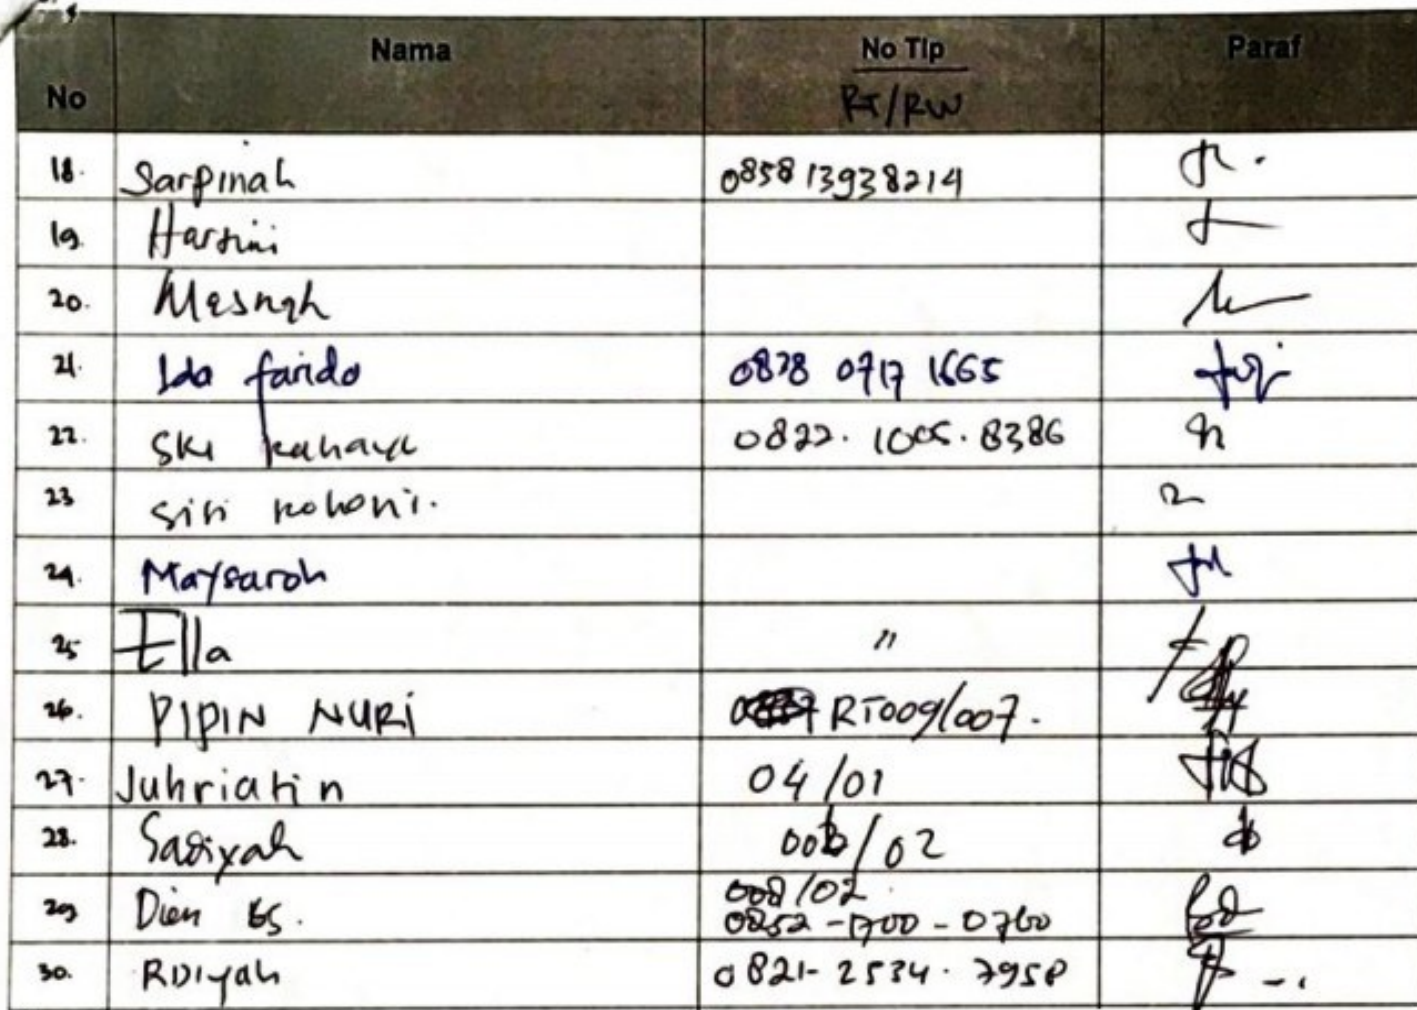 Nama No Tlp Paraf
No RT/RW
18. Sarpinah 085813938214
19. Hartini
20. Mesnah
21. Ida farida 0878 0717 1665
22. 0822. 1005. 8386
23 siti
24. Maysaroh
25 Ella "
26. PIPIN NURI RT009/007.
27. Juhriatin 04/01
28. Sadiyah /02
29 Dien 008/02
0852-1700-0760
30. RDiyah 0821-2534-7958